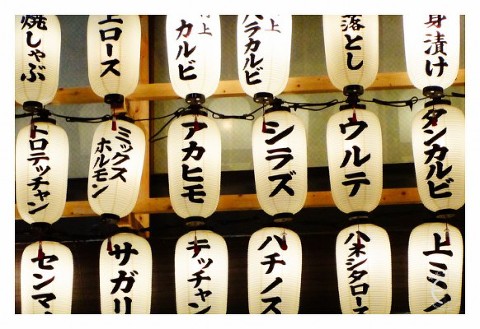 焼しゃぶ
上ロース
特上
カルビ
バラカルビ
落とし
身漬け
トロテッチャン
ミックス
ホルモン
アカヒモ
シラズ
ウルテ
タンカルビ
センマ
サガリ
キッチャン
ハチノス
ハネシタロース
上ミノ